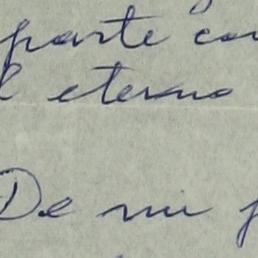 parte con
l eterno
De mi p